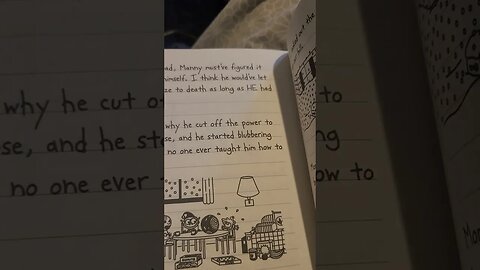 ad, Manny must've figured it
himself. I think he would've let
ze to death as long as HE had
why he cut off the power to
se, and he started blubbering
no one ever taught him how to
why he cut
se, and he
no one ever
out the